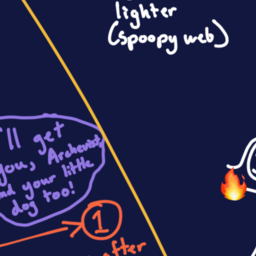 lighter
(spoopy web)
'll get
you, Archevist,
and your little
dog too!
1
after